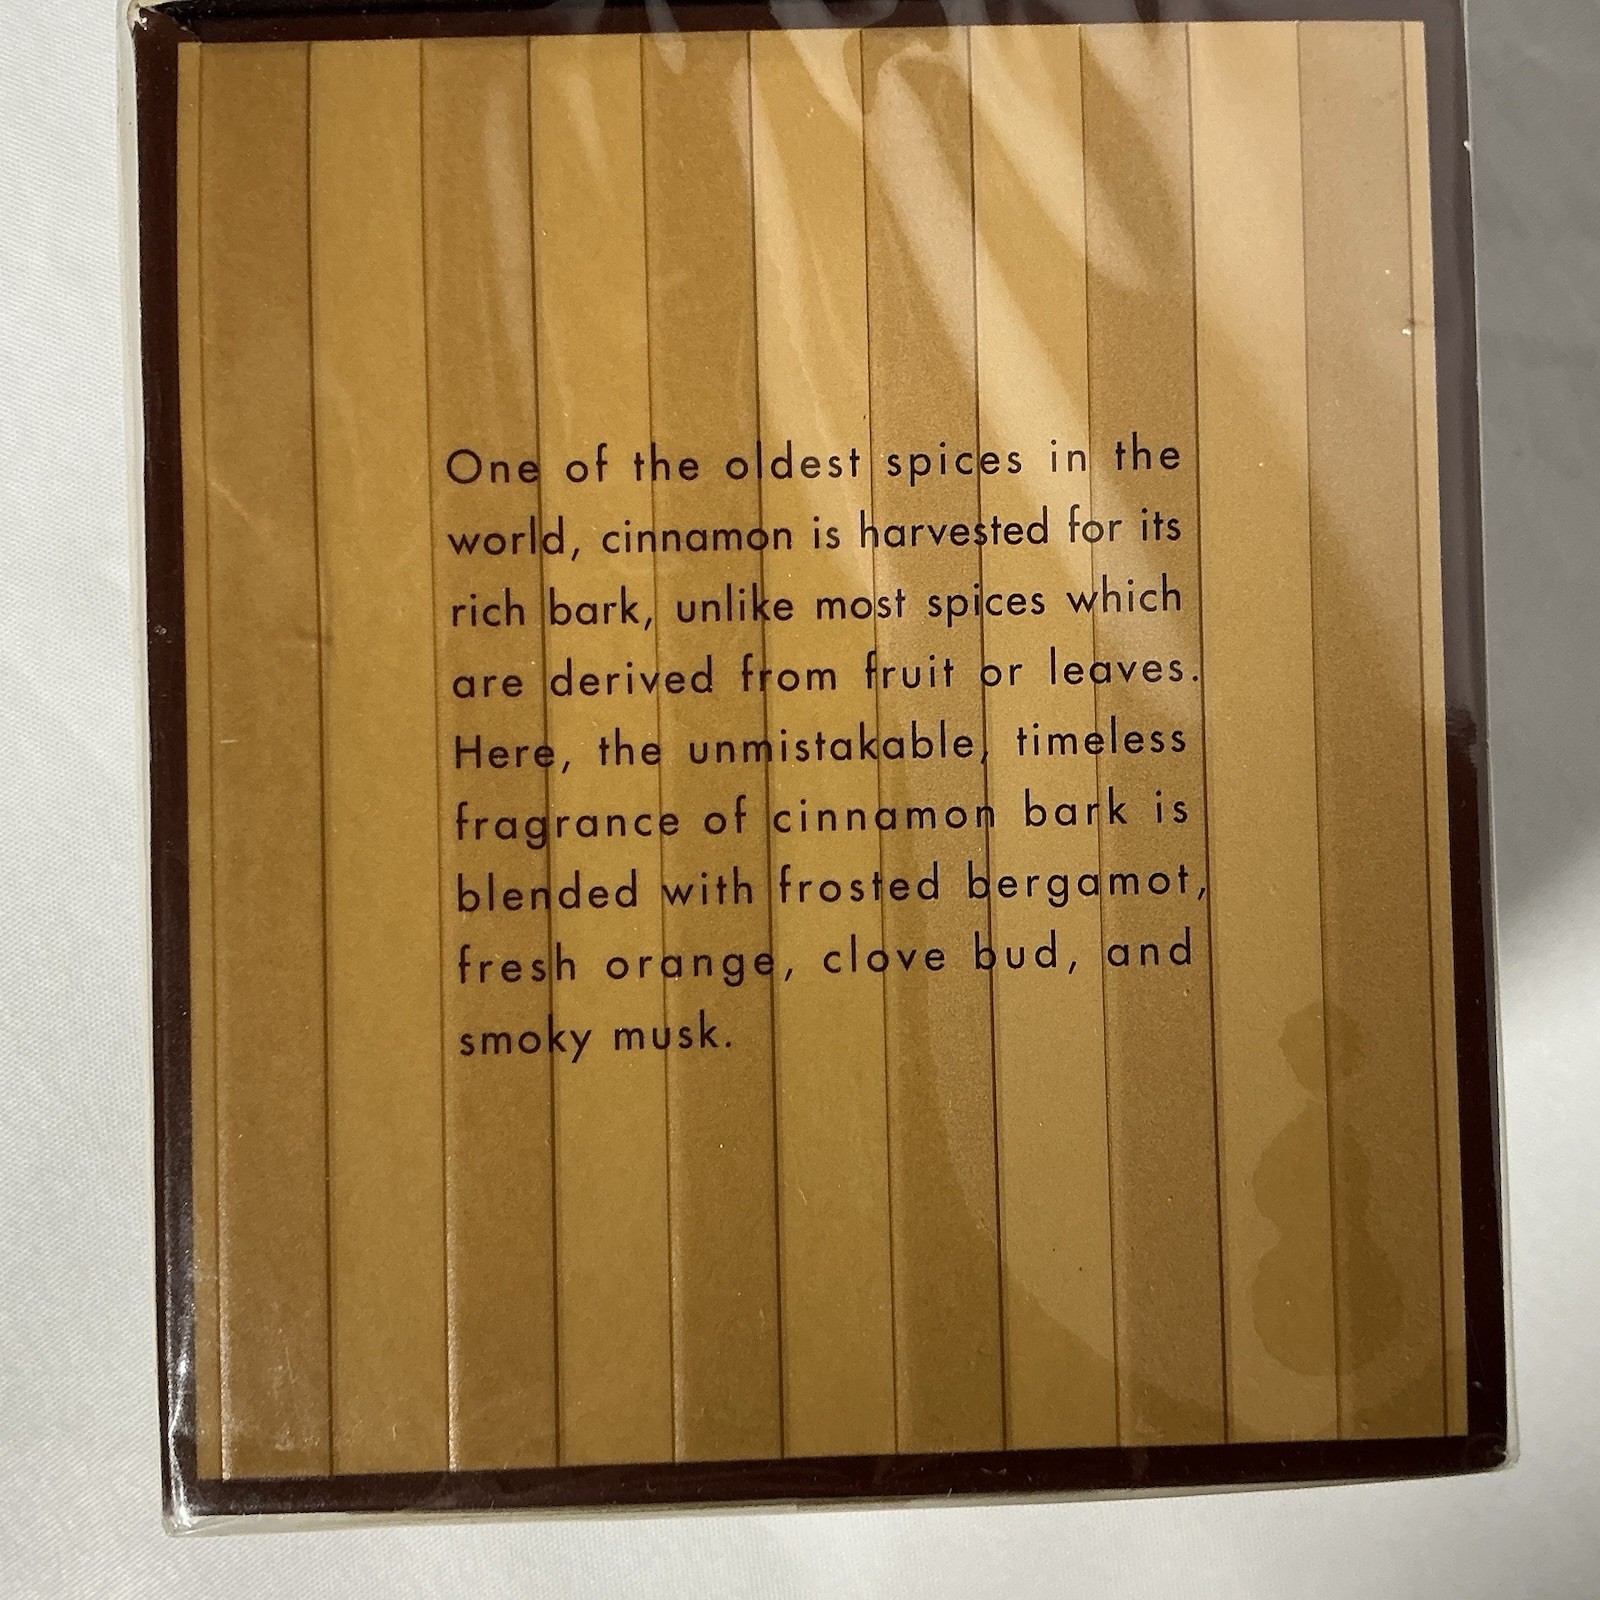 One of the oldest spices in the
world, cinnamon is harvested for its
rich bark, unlike most spices which
are derived from fruit or leaves.
Here, the unmistakable, timeless
fragrance of cinnamon bark is
blended with frosted bergamot,
fresh orange, clove bud, and
smoky musk.